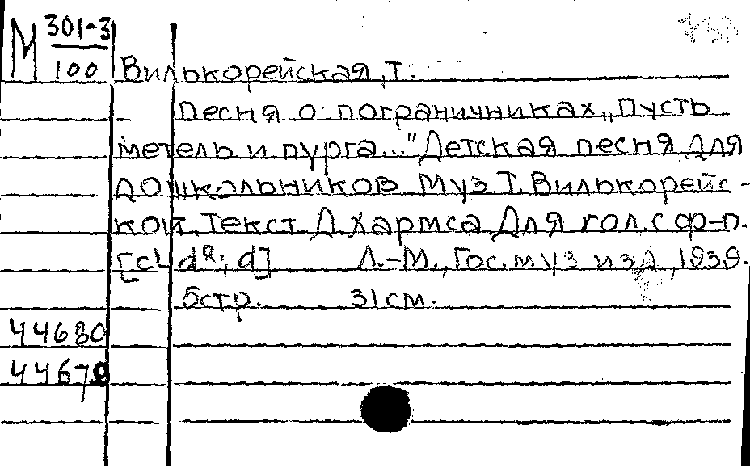 М 301-3
100
Вилькорейская, Т.
Песня о пограничниках „Пусть
метель и пурга..." Детская песня для
дошкольников Муз Т. Вилькорейс-
кой. Текст Д. Хармса Для гол. с ф-п.
Л.-М., Гос. муз изд, 1939.
6стр. 31см.
44680
44679